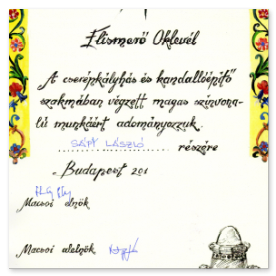 Elismerő Oklevél
A cserépkályhás és kandallóépítő
szakmában végzett magas színvona-
lú munkáért adományozzuk.
László részére
Budapest 201
Macsoi elnök
Macsoi alelnök